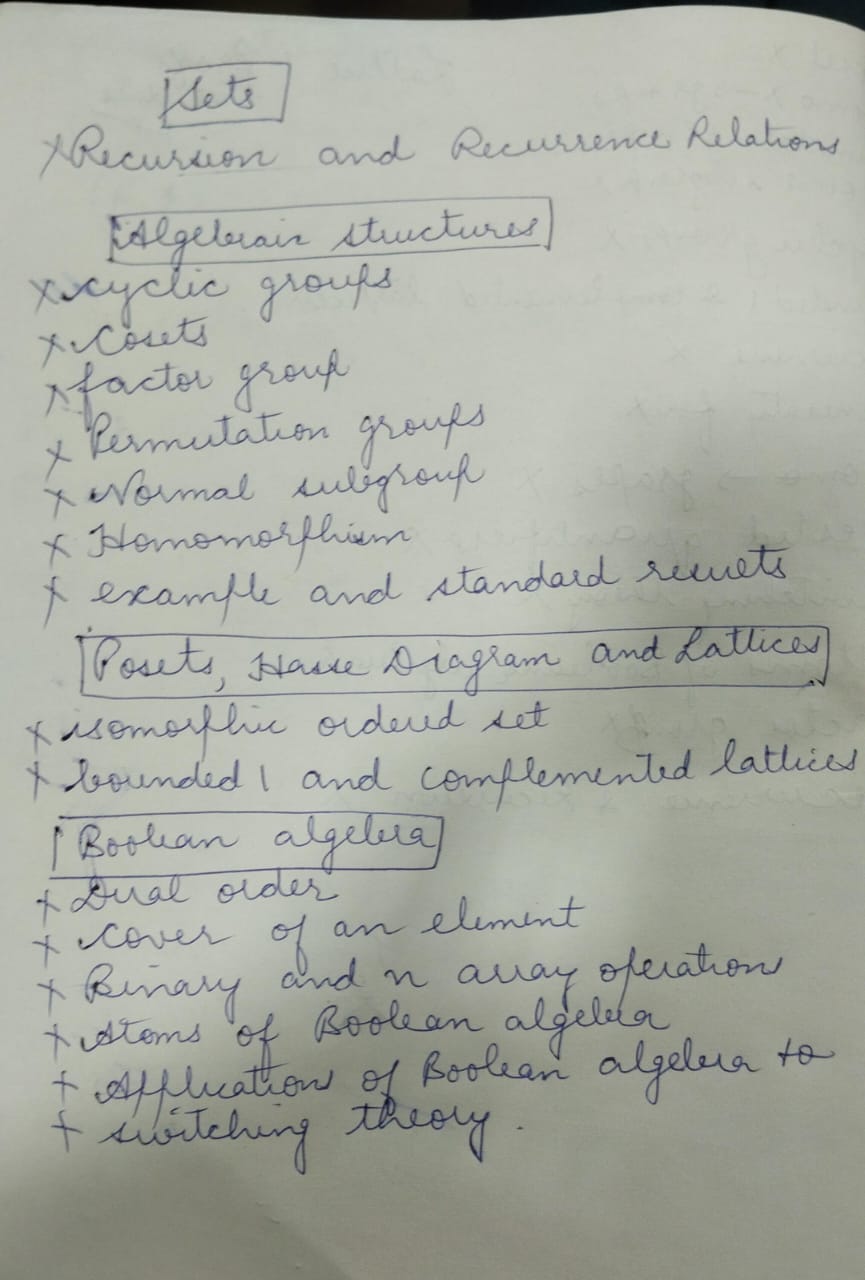 Sets
x Recursion and Recurrence Relations
Algebraic structures
x cyclic groups
x Cosets
x factor group
x Permutation groups
x Normal subgroup
x Homomorphism
x example and standard results
Posets, Hasse Diagram and Lattices
x isomorphic ordered set
x bounded | and complemented lattices
Boolean algebra
x Dual order
x cover of an element
x Binary and n array operations
x Atoms of Boolean algebra
x Applications of Boolean algebra to
x switching theory.